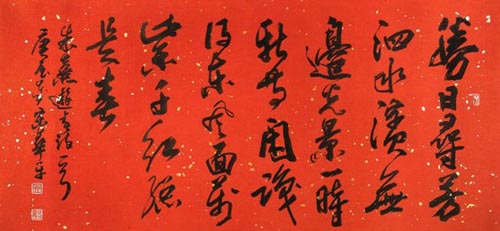 勝日尋芳
泗水濱無
邊光景一時
新等閒識
得東風面萬
紫千紅總
是春
朱熹遊春詩一首
庚寅